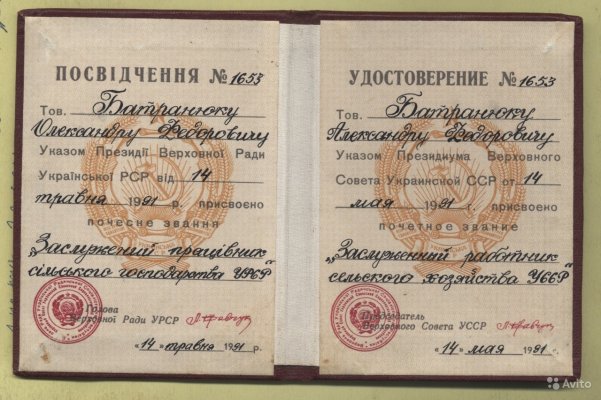 ПОСВІДЧЕННЯ № 1653
Тов. Батранюку
Олександру Федоровичу
Указом Президії Верховної Ради
Української РСР від 14
травня 1991 г. присвоєно
почесне звання
„Заслужений працівник
сільського господарства УРСР"
Голова
Верховної Ради УРСР
„14" травня 1991 р.
УДОСТОВЕРЕНИЕ № 1653
Тов. Батранюку
Александру Федоровичу
Указом Президиума Верховного
Совета Украинской ССР от 14
мая 1991 г. присвоено
почетное звание
„Заслуженный работник
сельского хозяйства УССР"
Председатель
Верховного Совета УССР
„14" мая 1991 г.
Avito